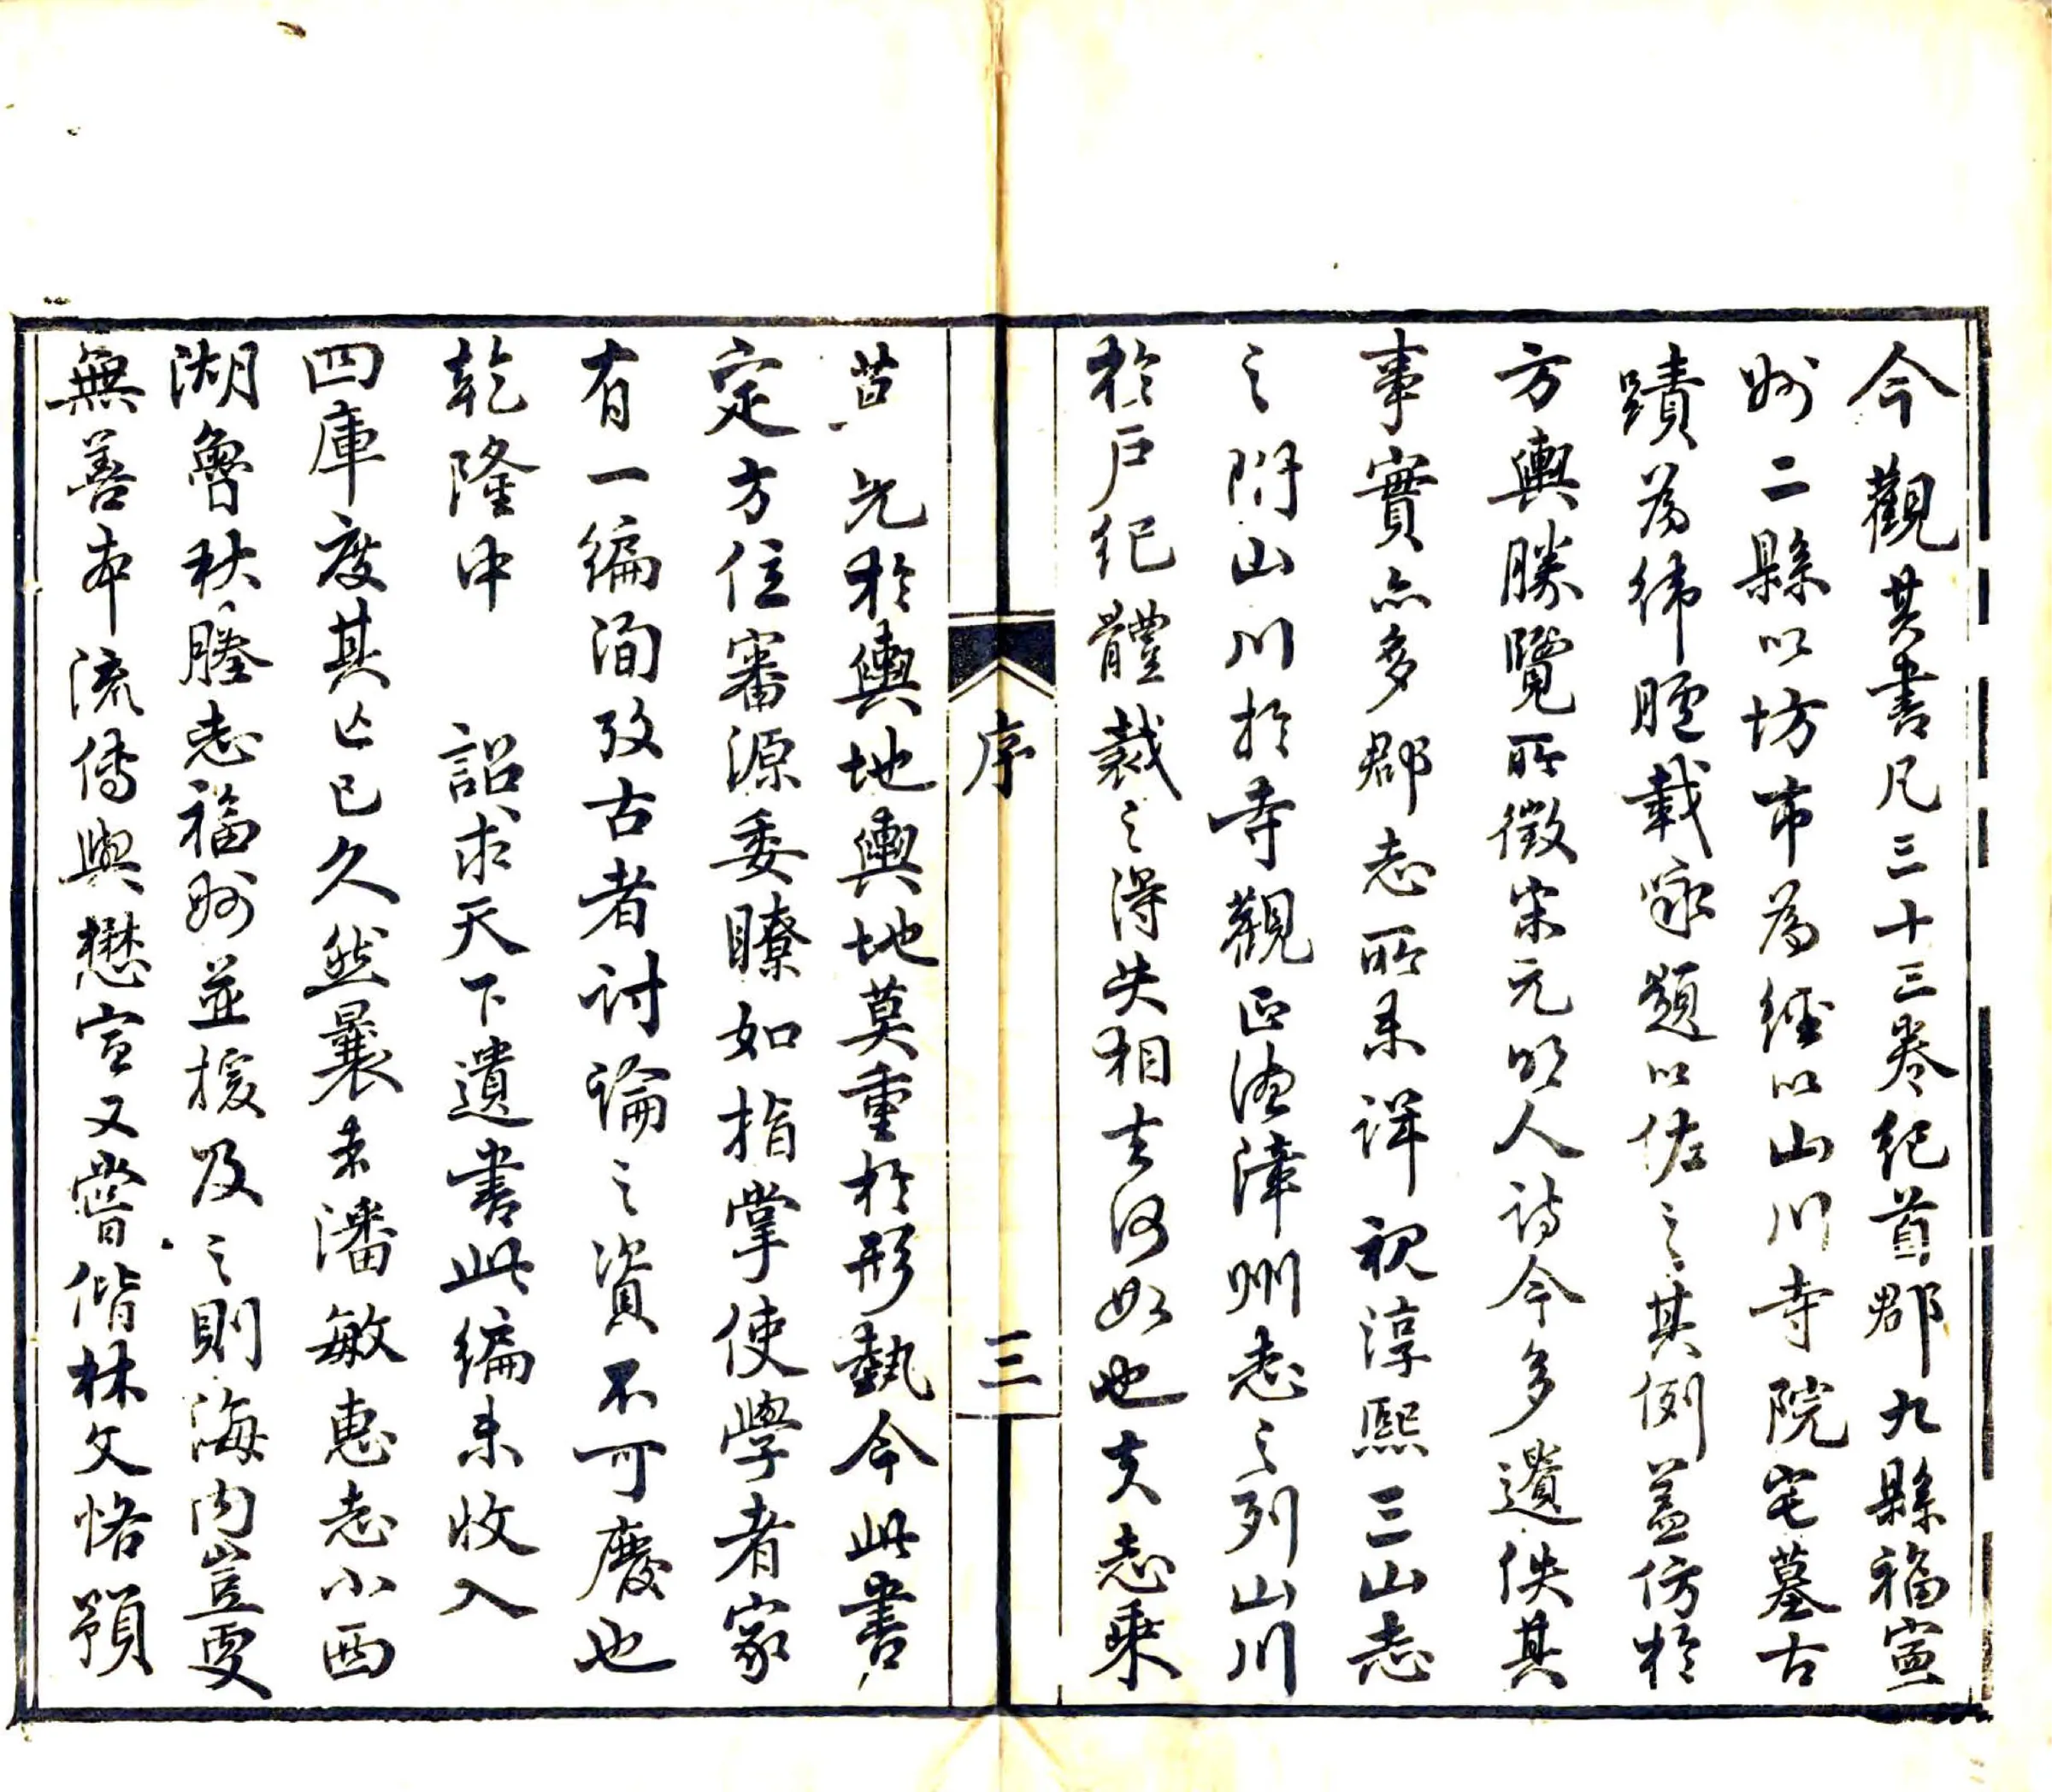 今觀其書凡三十三卷紀首郡九縣福寧
州二縣以坊市為經以山川寺院宅墓古
蹟為緯臚載詠題以佐之其例蓋仿於
方輿勝覽所徵宋元明人詩今多遺佚其
事實亦多郡志所未詳視淳熙三山志
之附山川於寺觀正德漳州志之列山川
於戶紀體裁之得失相去何如也夫志乘
莫先於輿地輿地莫重於形埶今此書
定方位審源委瞭如指掌使學者家
有一編洵攷古者討論之資不可廢也
乾隆中 詔求天下遺書此編未收入
四庫度其亡已久然曩未潘敏惠志小西
湖魯秋塍志福州並援及之則海內豈更
無善本流傳與懋宣又嘗偕林文恪預
序
三